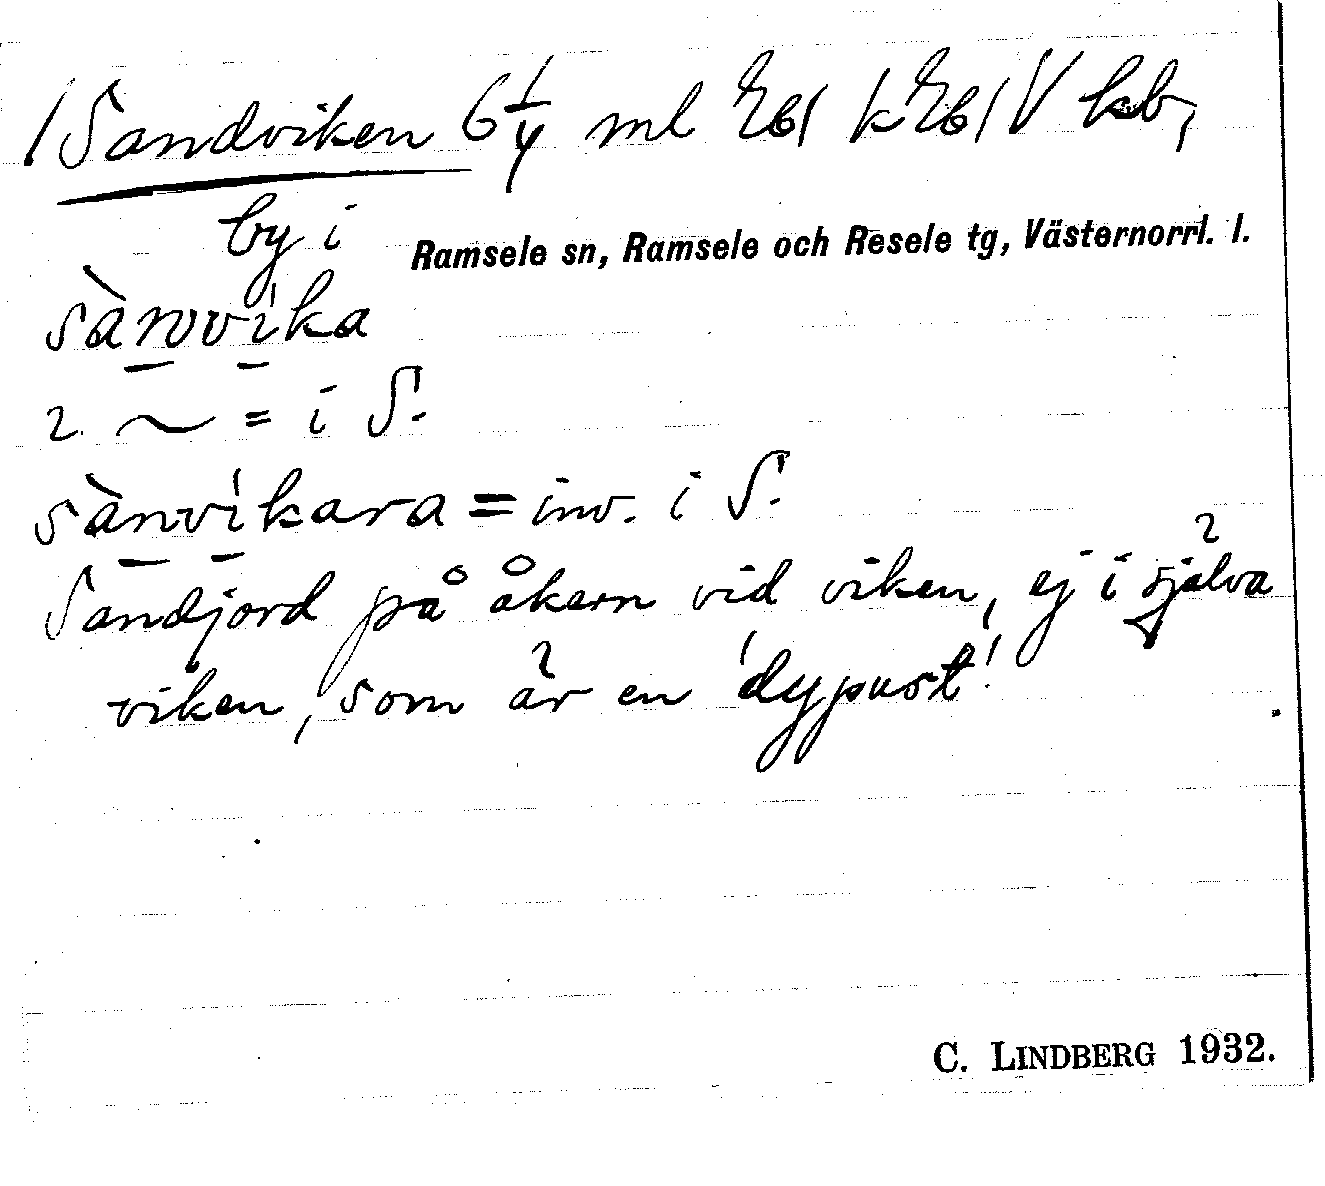 1 Sandviken 6 1/4 ml kb,
by i Ramsele sn, Ramsele och Resele tg, Västernorrl. l.
sànvika
2. ~ = i S.
sànvikara = inv. i S.
Sandjord på åkern vid viken, ej i själva
viken, som är en 'dypust'.
C. LINDBERG 1932.